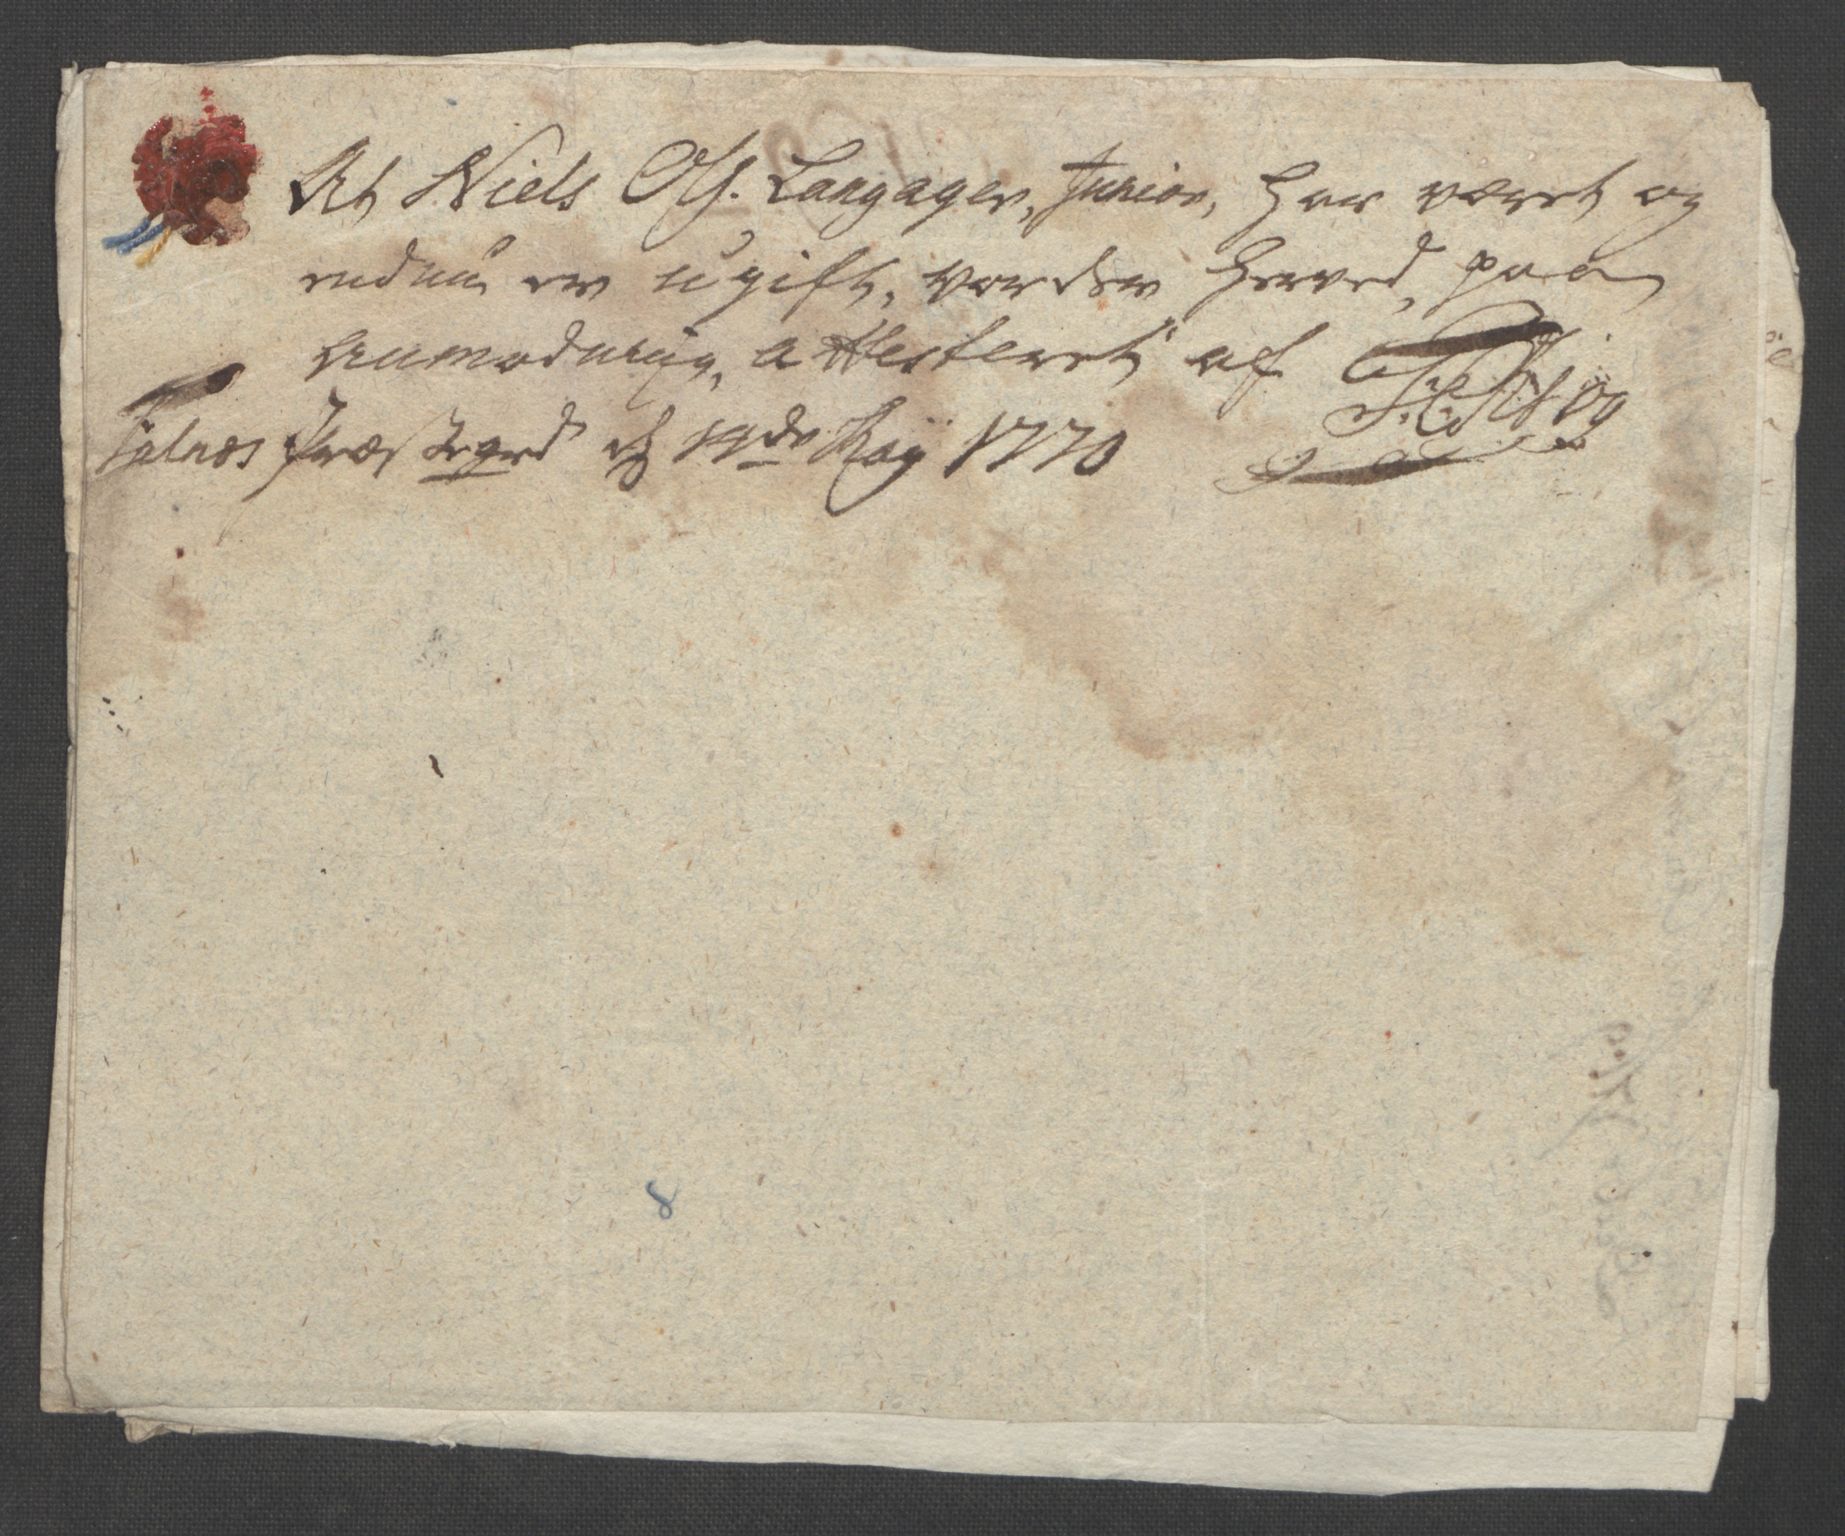 At Niels Ols. Langager, Junior, har været og
endnu er ugift, vorder herved, paa
anmodning, attesteret af
Præstegrd d 14de Maÿ 1770
8